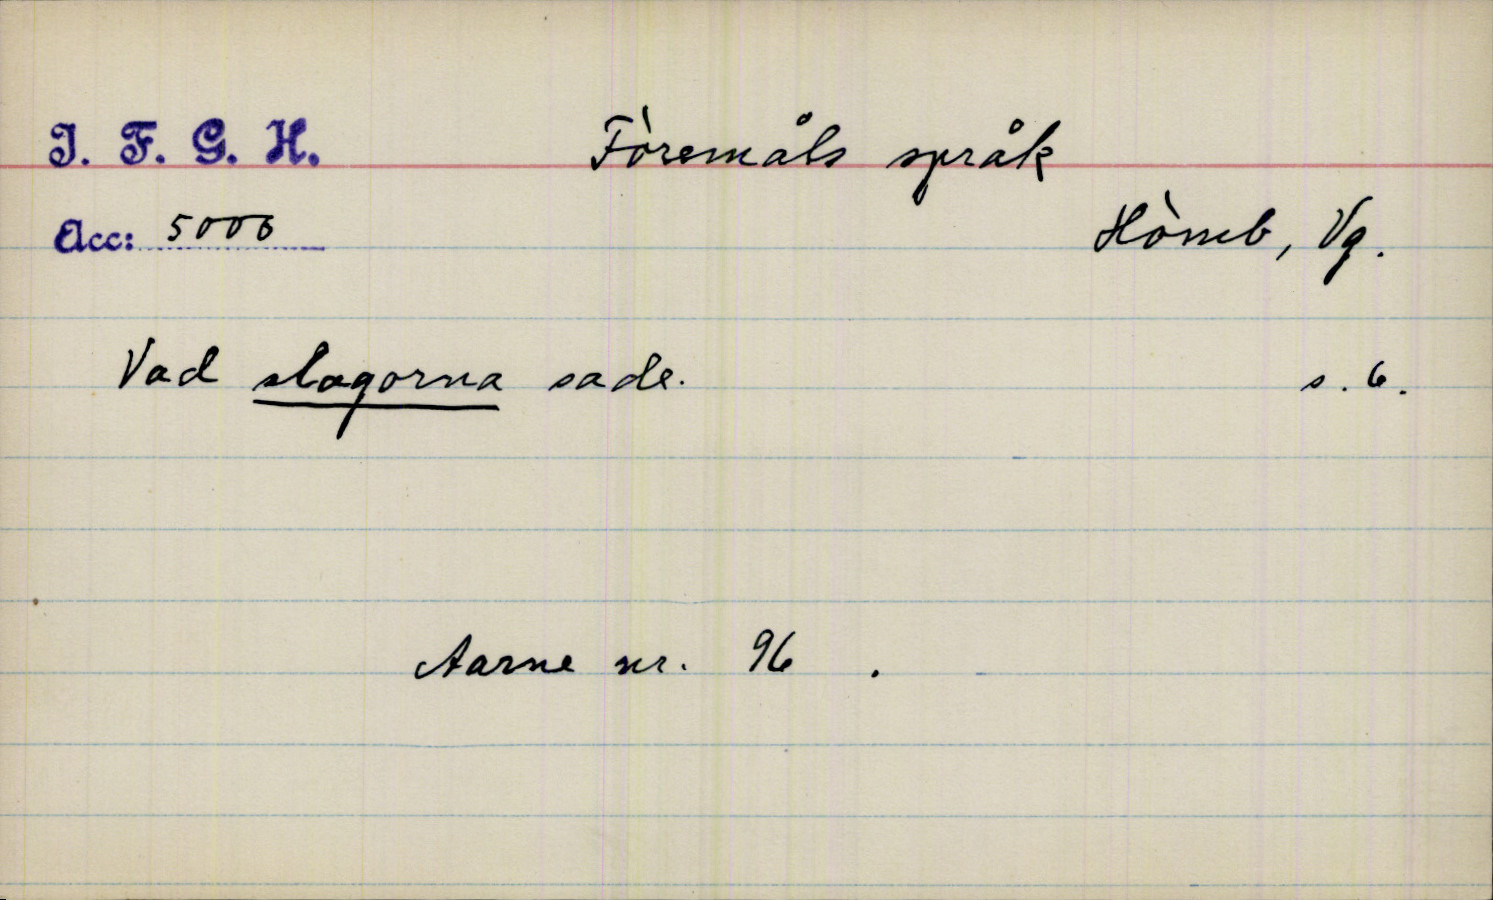 I. F. G. H.
Föremåls språk
Acc: 5006
Hömb, Vg.
Vad slagorna sade.
s. 6.
Aarne nr. 96 .